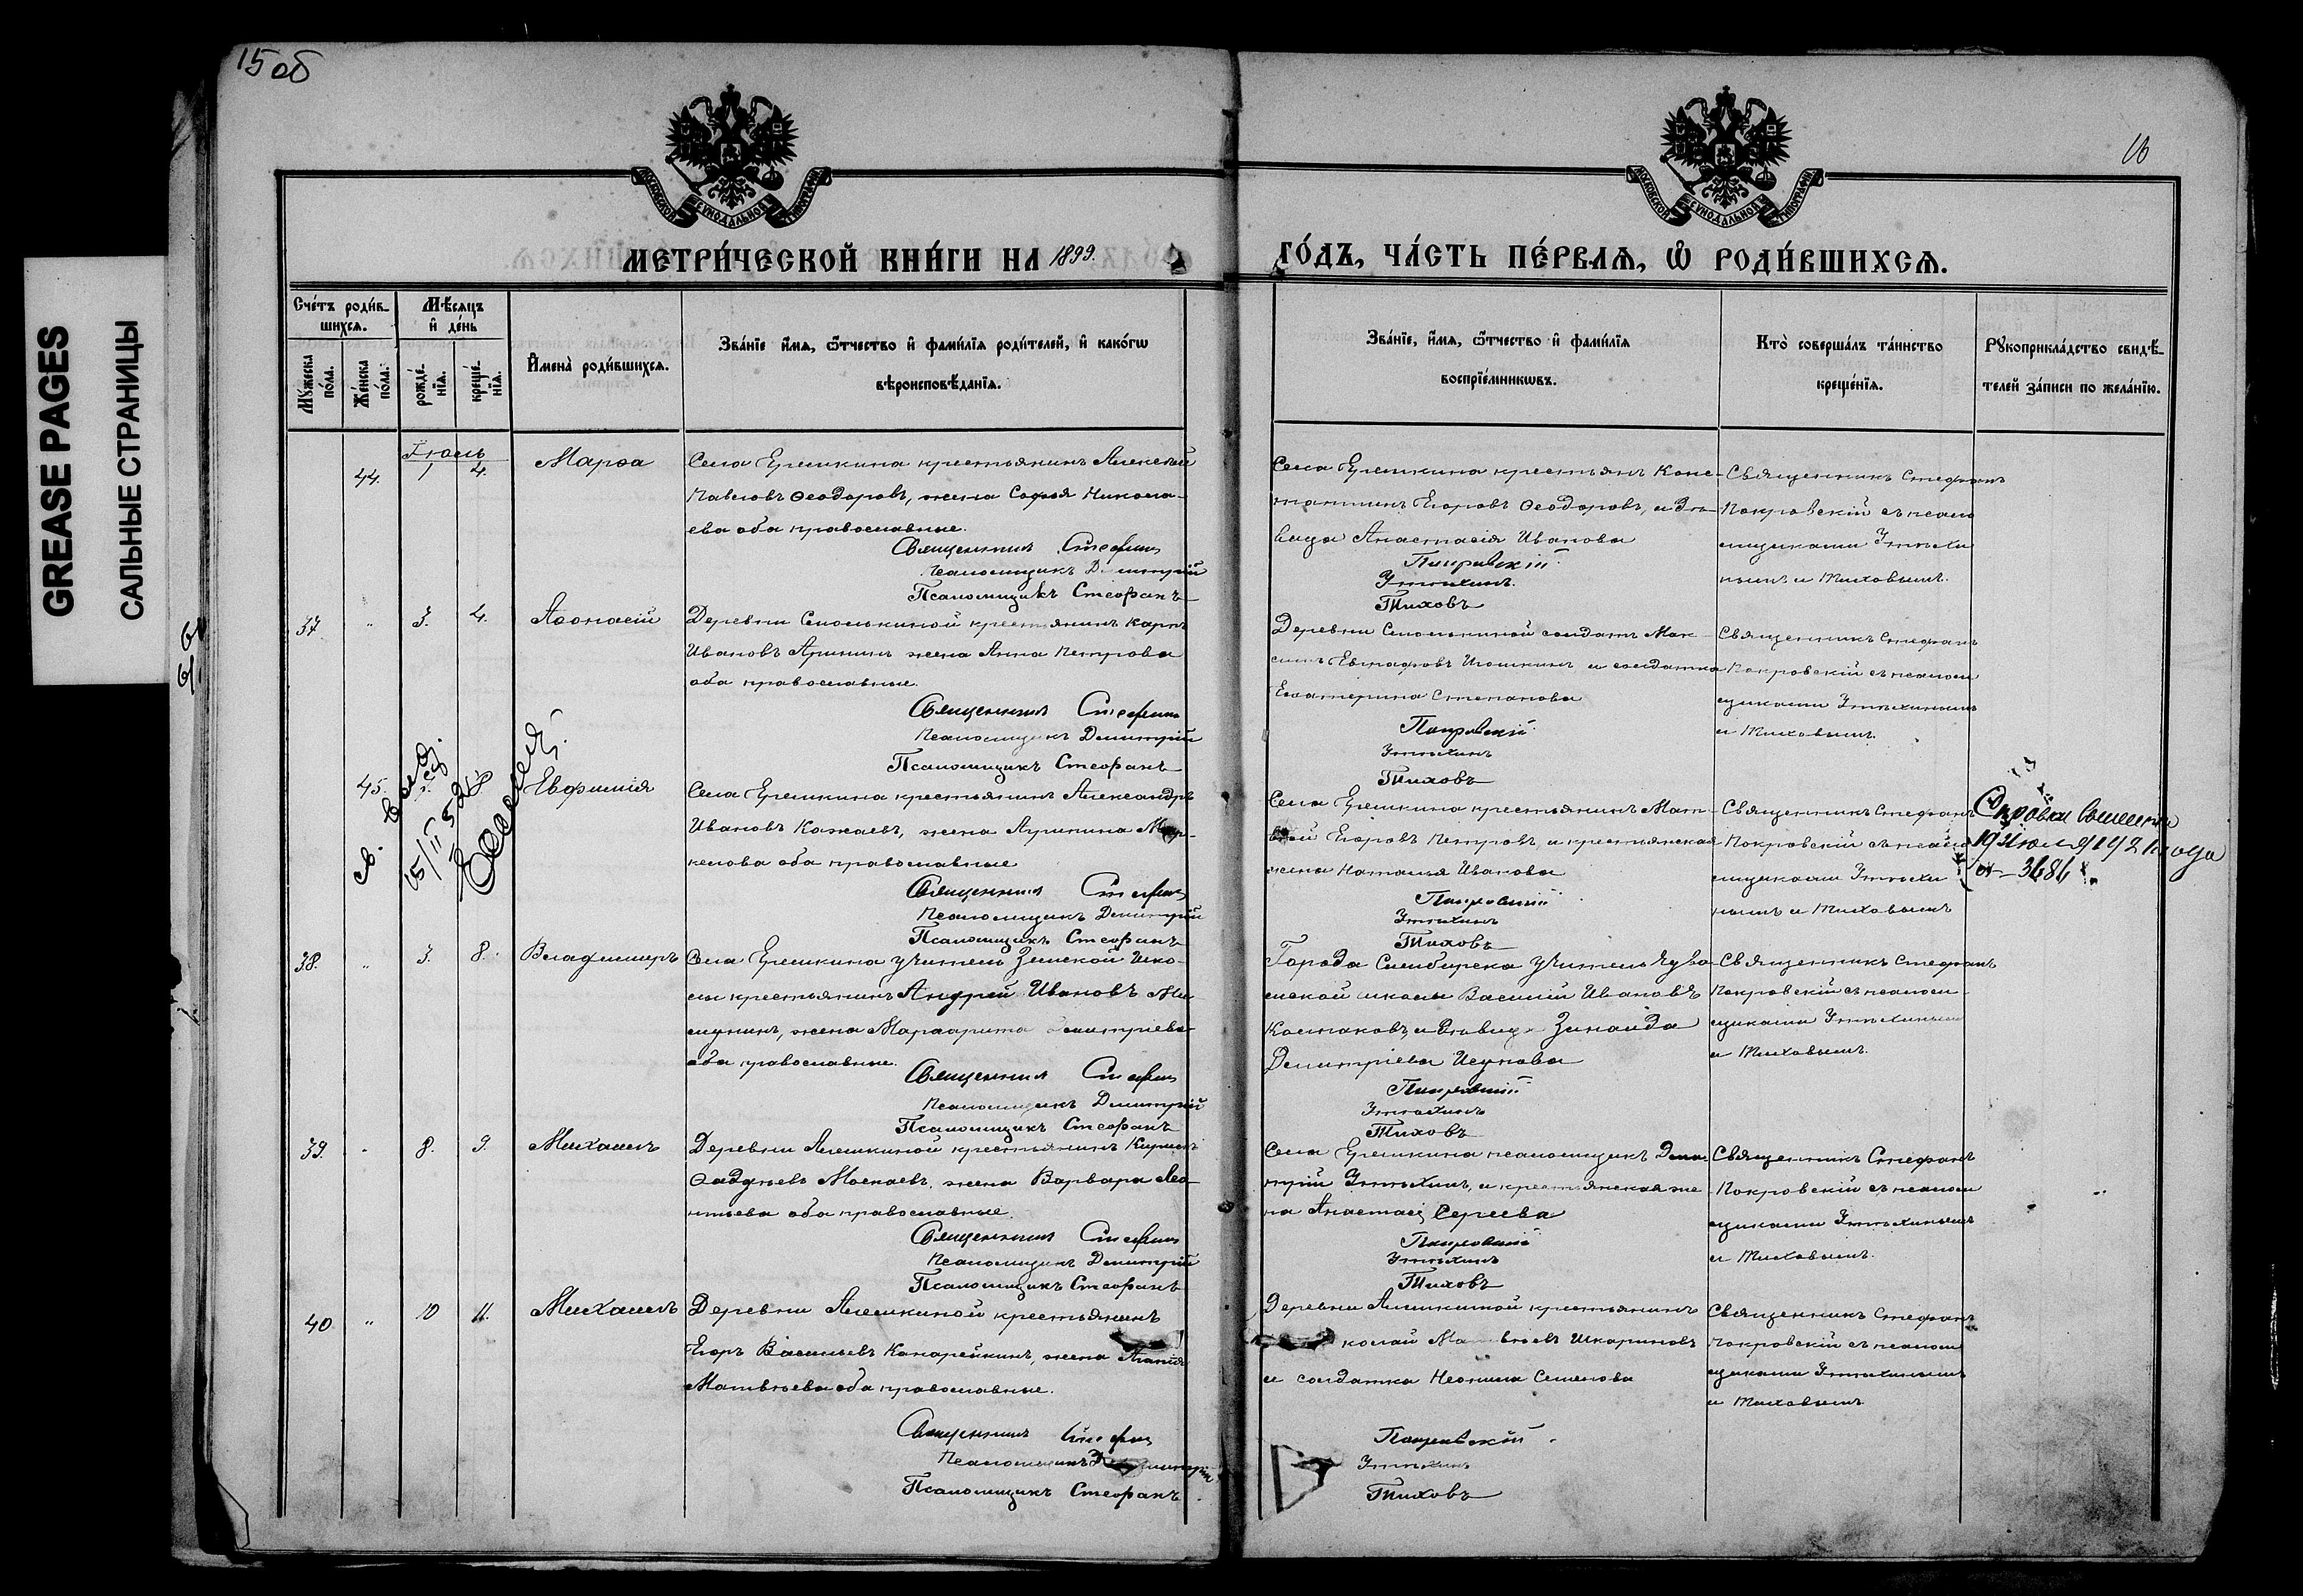 15 об
16
GREASE PAGES
САЛЬНЫЕ СТРАНИЦЫ
МЕТРИ́ЧЕСКОЙ КНИ́ГИ НА 1899.
ГО́ДЪ, ЧА́СТЬ ПЕ́РВАЯ, Ѡ РОДИ́ВШИХСЯ.
Сче́тъ роди́в-
шихся.
Мѣсяцъ
и де́нь
Мꙋжеска по́ла.
Же́нска по́ла.
рожде́-
нїя.
креще́-
нїя.
Имена̀ роди́вшихся.
Зва́нїе имя, ѻтчество и фами́лїя роди́телей, и како́гѡ
вѣроисповѣданїя.
Зва́нїе, имя, ѻтчество и фами́лїя
воспрїе́мникѡвъ.
Кто̀ соверша́лъ та́инство
креще́нїя.
Рꙋкоприкла́дство свидѣ-
телей за́писи по жела́нїю.
Іюль
44. 1 4. Марѳа
Села Ерешкина крестьянинъ Алексѣй
Павловъ Ѳеодоровъ, жена Софья Никола-
ева оба православные.
Священникъ Стефанъ
Псаломщикъ Димитрій
Псаломщикъ Стефанъ
Села Ерешкина крестьян. Конс-
тантинъ Егоровъ Ѳеодоровъ, и дѣ-
вица Анастасія Иванова
Покровскій
Утѣхинъ.
Тиховъ
Священникъ Стефанъ
Покровскій съ псалом
щиками Утѣхи
нымъ и Тиховымъ.
37. " 3. 4. Аѳонасій
Деревни Смолькиной крестьянинъ Карпъ
Ивановъ Аринин жена Анна Петрова
оба православные.
Священникъ Стефанъ
Псаломщикъ Димитрій
Псаломщикъ Стефанъ
Деревни Смолькиной солдатъ Мак-
симъ Евграфовъ Илюшкинъ и солдатка
Екатерина Степанова
Покровскій
Утѣхинъ
Тиховъ
Священникъ Стефанъ
Покровскій съ псалом
щиками Утѣхинымъ
и Тиховымъ.
45. 8 Евфимія
Села Ерешкина крестьянинъ Александръ
Ивановъ Кажаевъ, жена Агрипина Мар-
келова оба православные
Священникъ Стефанъ
Псаломщикъ Димитрій
Псаломщикъ Стефанъ
Села Ерешкина крестьянинъ Мат-
вѣй Егоровъ Петровъ, и крестьянская
жена Наталья Иванова
Покровскій
Утѣхинъ
Тиховъ
Священникъ Стефанъ
Покровскій съ псалом
щиками Утѣхи
нымъ и Тиховымъ
19 Июля 1921 года
3686
38. " 3. 8. Владимиръ
Села Ерешкина учитель Земской Шко-
лы крестьянинъ Андрей Ивановъ Ми
жена Маргарита Димитріева
оба православные.
Священникъ Стефанъ
Псаломщикъ Димитрій
Псаломщикъ Стефанъ
Города Симбирска учитель Чува-
шской школы Василій Ивановъ
и дѣвица Зинаида
Димитріева
Покровскій
Утѣхинъ
Тиховъ
Священникъ Стефанъ
Покровскій съ псалом-
щиками Утѣхинымъ
и Тиховымъ.
39. " 8. 9. Михаилъ
Деревни Алешкиной крестьянинъ Кирилъ
Ѳадѣевъ Москаевъ, жена Варвара Лео-
нтьева оба православные.
Священникъ Стефанъ
Псаломщикъ Димитрій
Псаломщикъ Стефанъ
Села Ерешкина псаломщикъ Дми-
трій Утѣхинъ, и крестьянская же-
на Анастасія Сергѣева
Покровскій
Утѣхинъ
Тиховъ
Священникъ Стефанъ
Покровскій съ псалом
щиками Утѣхинымъ
и Тиховымъ.
40 " 10 11. Михаилъ
Деревни Алешкиной крестьянинъ
Егоръ Васильевъ Канарейкинъ, жена
Матвѣева оба православные.
Священникъ Стефанъ
Псаломщикъ Димитрій
Псаломщикъ Стефанъ
Деревни Алешкиной крестьянинъ
колай Матвѣевъ Шкариновъ
и солдатка Неонила Семенова
Покровскій
Утѣхинъ
Тиховъ
Священникъ Стефанъ
Покровскій съ псалом
щиками Утѣхинымъ
и Тиховымъ